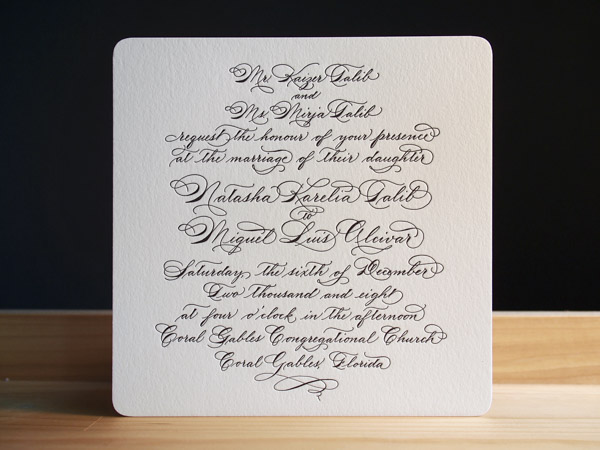 Mr. Kaizer Talib
and
Ms. Mirja Talib
request the honour of your presence
at the marriage of their daughter
Natasha Karelia Talib
To
Miguel Luis Alcivar
Saturday, the sixth of December
Two thousand and eight
at four o'clock in the afternoon
Coral Gables Congregational Church
Coral Gables, Florida